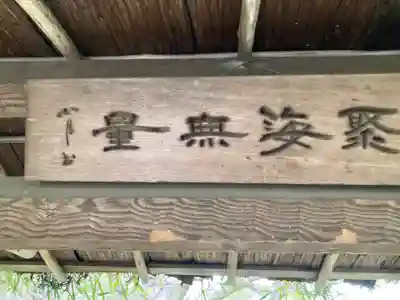 聚海無量